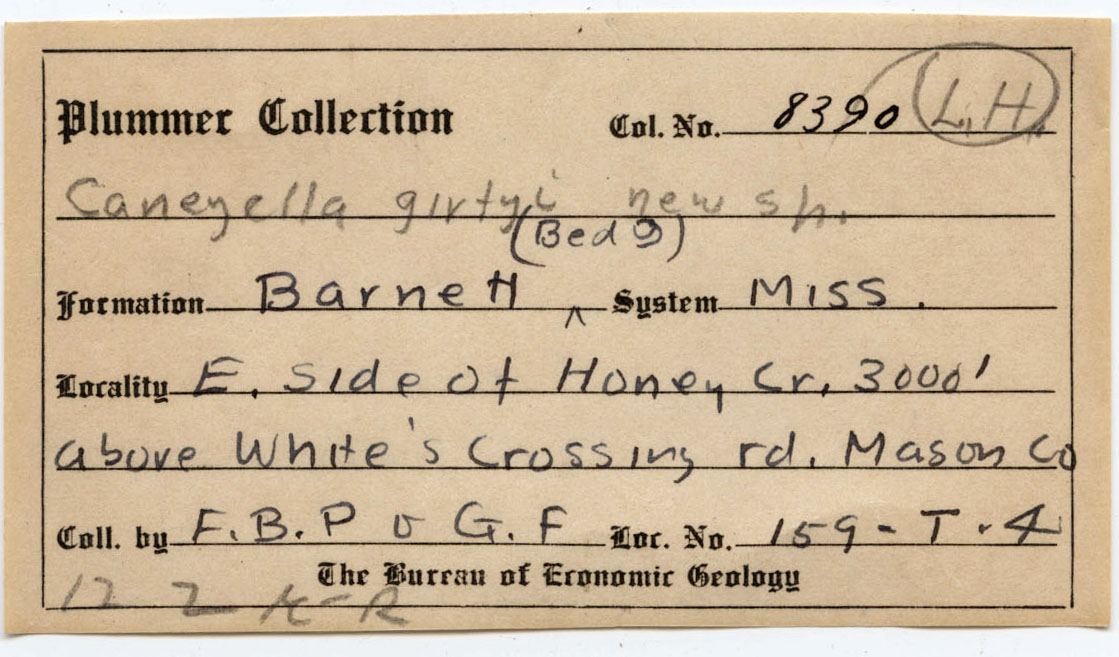 Plummer Collection Col. No. 8390 L.H.
Caneyella girtyi new sp.
(Bed 9)
Formation Barnett ^ System Miss.
Locality E. side of Honey Cr. 3000'
above White's Crossing rd. Mason Co
Coll. by F.B.P & G.F Loc. No. 159-T-4
The Bureau of Economic Geology
12 2